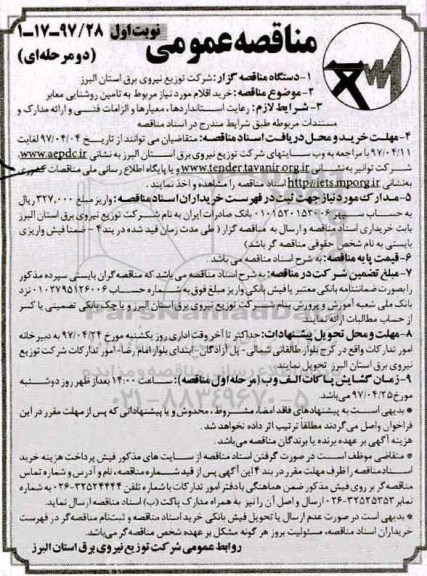 مناقصه عمومی
نوبت اول ۹۷/۲۸-۱۷-۱
(دو مرحله ای)
۱-دستگاه مناقصه گزار: شرکت توزیع نیروی برق استان البرز
۲-موضوع مناقصه: خرید اقلام مورد نیاز مربوط به تامین روشنایی معابر
۳-شرایط لازم: رعایت استانداردها، معیارها و الزامات فنی و ارائه مدارک و
مستندات مربوطه طبق شرایط مندرج در اسناد مناقصه
۴-مهلت خرید و محل دریافت اسناد مناقصه: متقاضیان می توانند از تاریخ ۹۷/۰۴/۰۴ لغایت
۹۷/۰۴/۱۱ با مراجعه به وب سایتهای شرکت توزیع نیروی برق استان البرز به نشانی www.aepdc.ir،
شرکت توانیر به نشانی www.tender.tavanir.org.ir و یا پایگاه اطلاع رسانی ملی مناقصات کشوری
به نشانی http://iets.mporg.ir اسناد مناقصه را مشاهده و اخذ نمایند.
۵-مدارک مورد نیاز جهت ثبت در فهرست خریداران اسناد مناقصه: واریز مبلغ ۳۲۷,۰۰۰ ریال
به حساب سپهر ۰۱۰۱۵۲۰۱۵۳۰۰۶ بانک صادرات ایران به نام شرکت توزیع نیروی برق استان البرز
بابت خریداری اسناد مناقصه و ارسال به مناقصه گزار (طی مدت زمان قید شده در بند ۴ - ضمنا فیش واریزی
بایستی به نام شخص حقوقی مناقصه گر باشد)
۶-قیمت پایه مناقصه: به شرح اسناد مناقصه می باشد.
۷-مبلغ تضمین شرکت در مناقصه: به شرح اسناد مناقصه می باشد که مناقصه گران بایستی سپرده مذکور
را بصورت ضمانتنامه بانکی معتبر یا فیش بانکی واریز مبلغ فوق به شماره حساب ۰۱۰۲۷۹۵۱۲۶۰۰۶ نزد
بانک ملی شعبه آموزش و پرورش بنام شرکت توزیع نیروی برق استان البرز و یا چک بانکی تضمینی یا کسر
از حساب مطالبات ارائه نمایند.
۸-مهلت و محل تحویل پیشنهادات: حداکثر تا آخر وقت اداری روز یکشنبه مورخ ۹۷/۰۴/۲۴ به دبیرخانه
امور تدارکات واقع در کرج بلوار طالقانی شمالی - پل آزادگان - ابتدای بلوار امام رضا - امور تدارکات شرکت توزیع
نیروی برق استان البرز تحویل نمایند.
۹-زمان گشایش پاکات الف و ب (مرحله اول مناقصه): ساعت ۱۴:۰۰ بعد از ظهر روز دوشنبه
مورخ ۹۷/۰۴/۲۵ می باشد.
* بدیهی است به پیشنهادهای فاقد امضا، مشروط، مخدوش و یا پیشنهاداتی که پس از مهلت مقرر در این
فراخوان واصل می گردند مطلقا ترتیب اثر داده نخواهد شد.
هزینه آگهی بر عهده برنده یا برندگان مناقصه می باشد.
* متقاضی موظف است در صورت گرفتن اسناد مناقصه از سایت های مذکور فیش پرداخت هزینه خرید
اسناد مناقصه را ظرف مهلت مقرر در بند ۴ این آگهی پس از قید شماره مناقصه، نام و آدرس و شماره تماس
مناقصه گر بر روی فیش مذکور ضمن هماهنگی با دفتر امور تدارکات با شماره تلفن ۳۲۵۲۴۴۴۴-۰۲۶ به شماره
نمابر ۳۲۵۲۵۳۵۲-۰۲۶ ارسال و اصل آن را نیز به همراه مدارک پاکت (ب) اسناد مناقصه ارسال نماید.
* بدیهی است در صورت عدم ارسال یا تحویل فیش بانکی خرید اسناد مناقصه و ثبت نام مناقصه گر در فهرست
خریداران اسناد مناقصه، مسئولیت بروز هر گونه مشکل بر عهده شخص مناقصه گر می باشد.
روابط عمومی شرکت توزیع نیروی برق استان البرز
ParsNamadData
۰۲۱-۸۸۳۴۹۶۷۰-۵